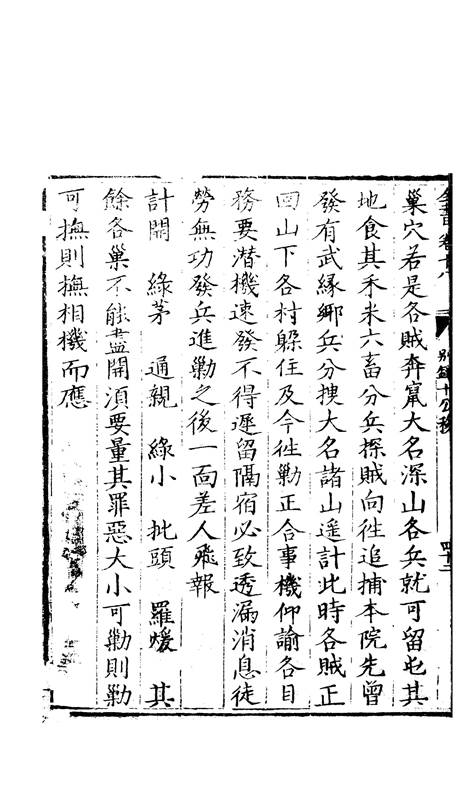 全書卷十八
別錄十公移
四十二
巢穴若是各賊奔竄大名深山各兵就可留屯其
地食其禾米六畜分兵探賊向徃追捕本院先曾
發有武緣鄉兵分搜大名諸山遥計此時各賊正
回山下各村躱住及今徃勦正合事機仰諭各目
務要潜機速發不得遲留隔宿必致透漏消息徒
勞無功發兵進勦之後一面差人飛報
計開 綠茅 通親 綠小 批頭 羅煖 其
餘各巢不能盡開須要量其罪惡大小可勦則勦
可撫則撫相機而應